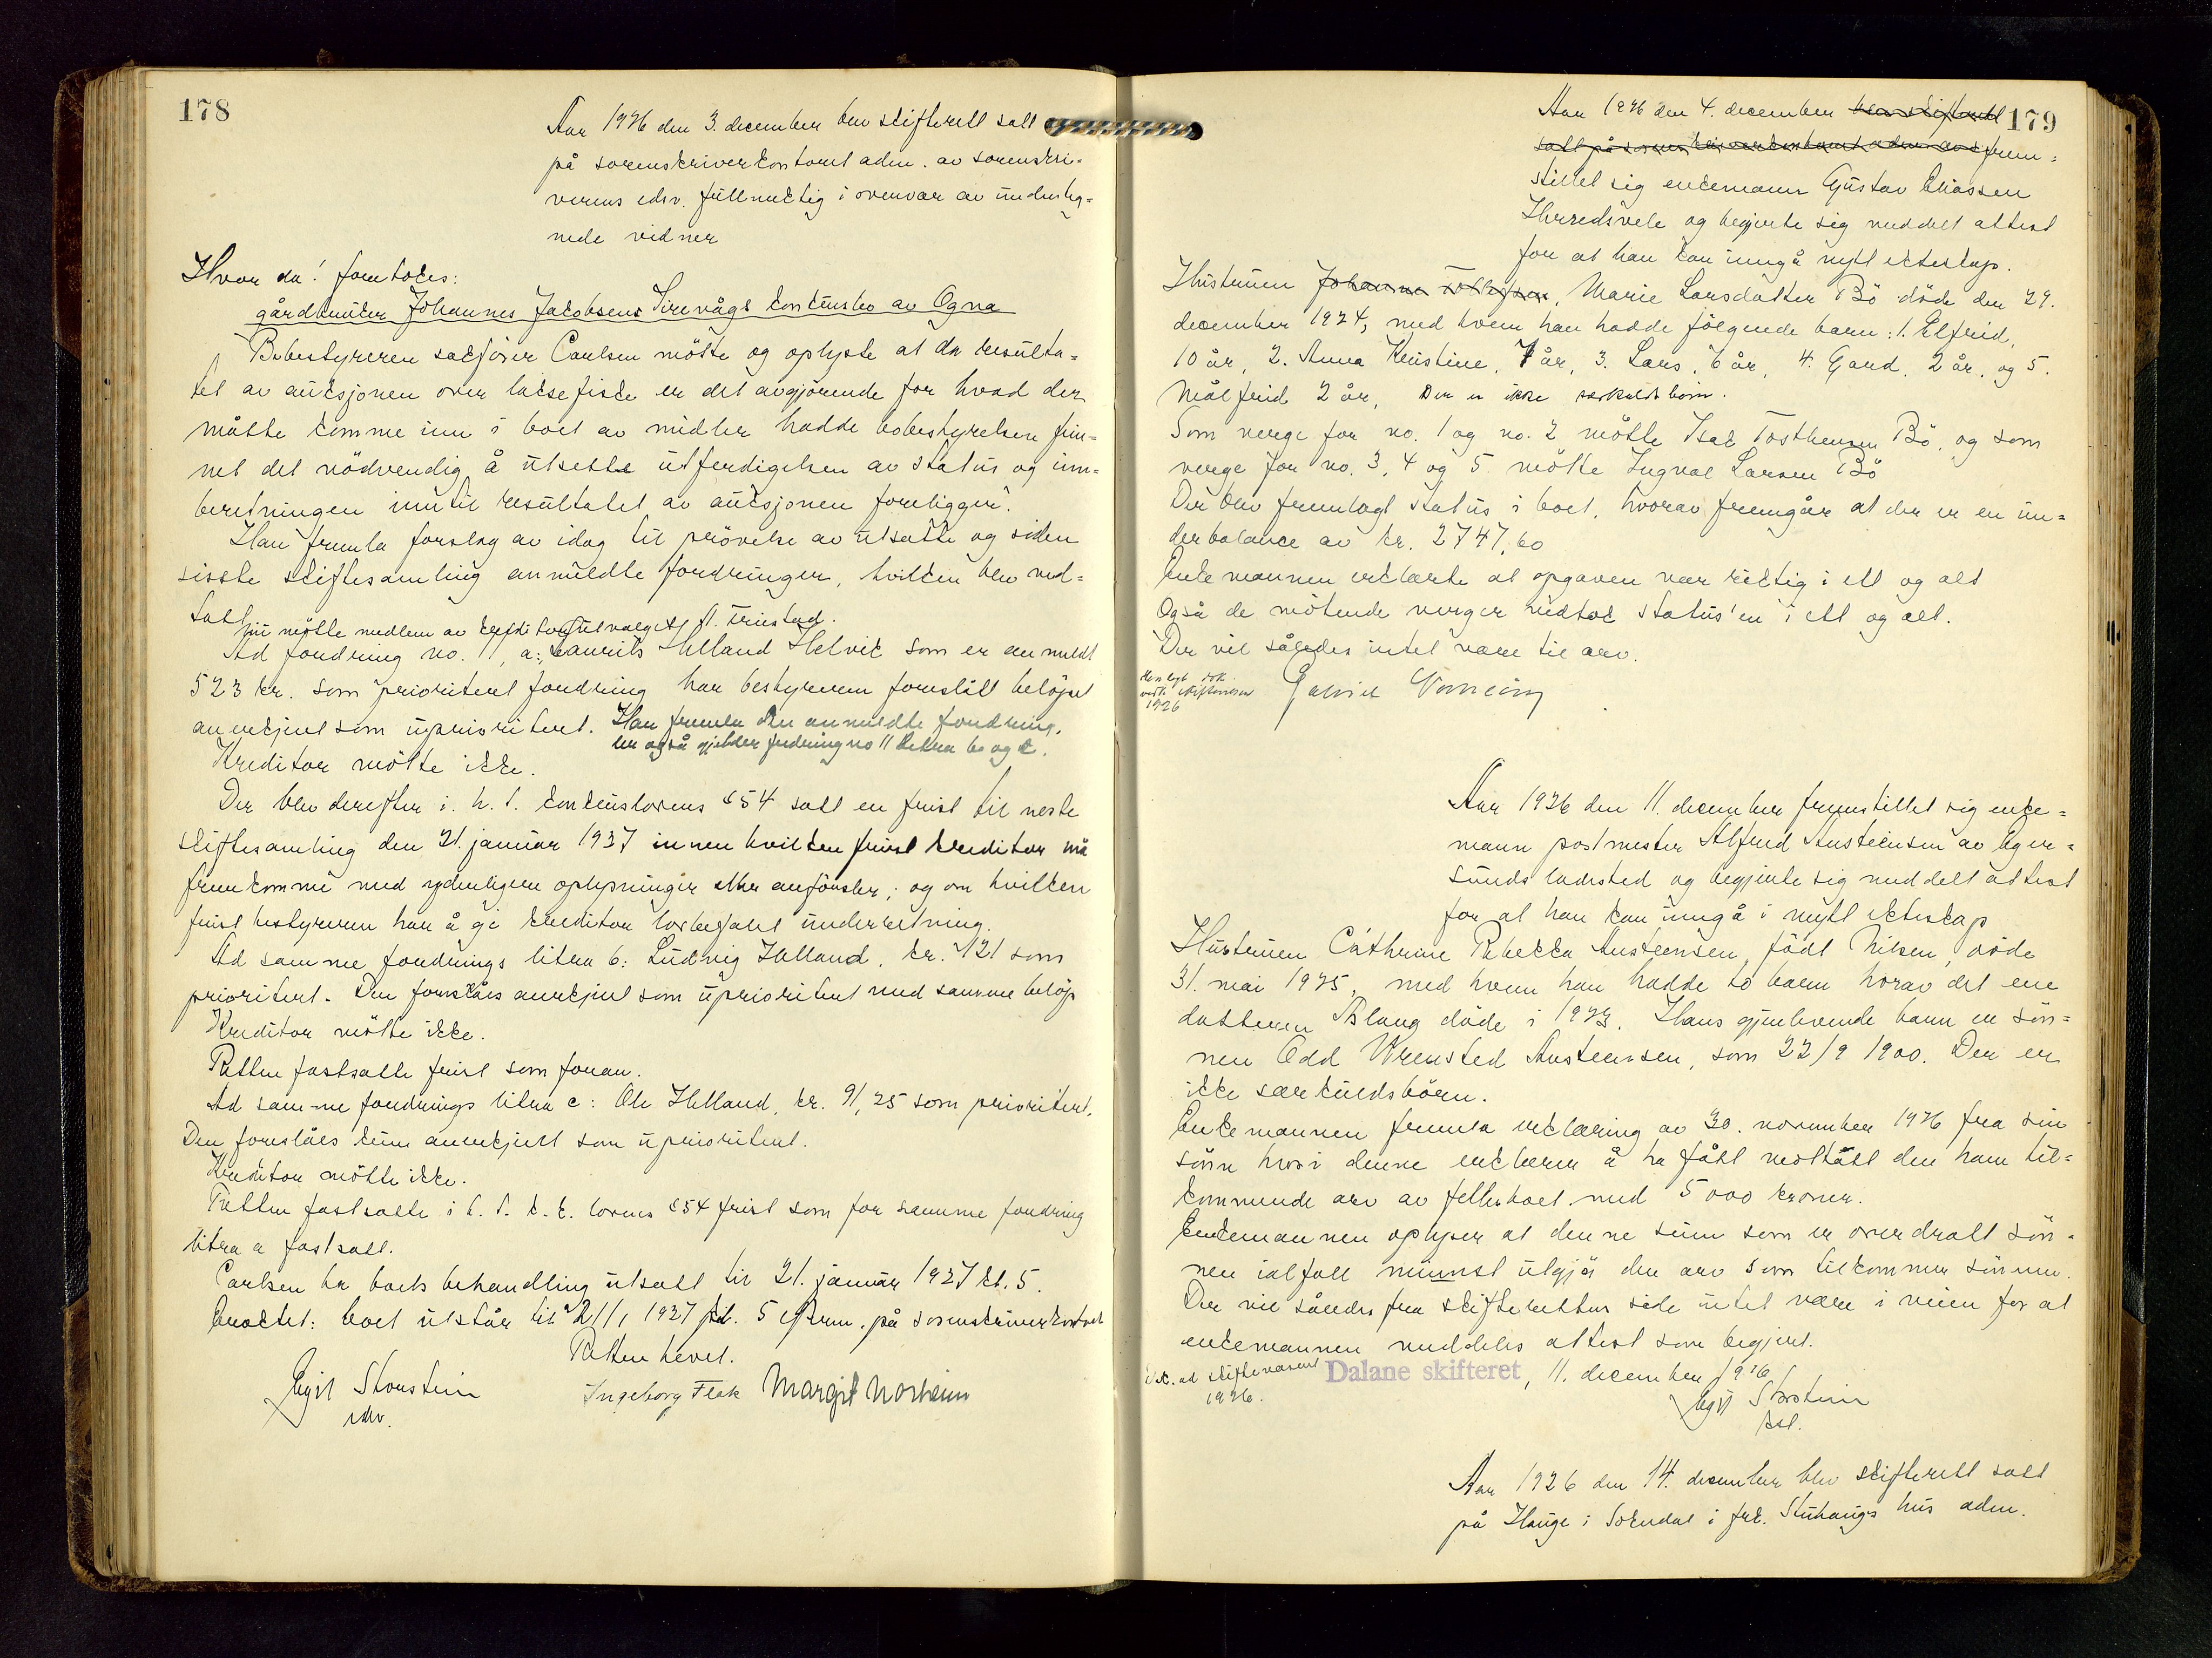 178
Aar 1926 den 3. december blev skifterett satt
på sorenskriverkontoret adm. av sorenskri-
verens edsv. fullmektig i overvær av underteg-
nede vidner
Hvor da! foretokes:
gårdbruker Johannes Jakobsens Sirevågs konkursbo av Ogna
Bobestyreren sakfører Carlsen møtte og oplyste at da resulta-
tet av auksjonen over laksefiske er det avgjørende for hvad der
måtte komme inn i boet av midler hadde bobestyrelsen fun-
net det nödvendig å utsette utferdigelsen av status og inn-
beretningen inntil resultatet av auksjonen foreligger.
Han fremla forslag av idag til prövelse av utsatte og siden
siste skiftesamling anmeldte fordringer, hvilken blev ved-
tatt
Nu møtte medlem av kreditorutvalget N. Tristad.
Ad fordring no. 11, a: Laurits Helland Helvik som er anmeldt
523 kr. som prioritert fordring har bestyreren foreslått beløpet
anerkjent som uprioritert. Han fremla den anmeldte fordring,
der også gjelder fordring no 11 litra b og c.
Kreditor møtte ikke.
Der blev derefter i h. t. konkurslovens §54 satt en frist til neste
skiftesamling den 21. januar 1937 innen hvilken frist kreditor må
fremkomme med ydenligere oplysninger eller anförsler; og om hvilken
frist bestyreren har å gi kreditor lovbefalet underretning.
Ad samme fordrings litra b: Ludvig Helland, kr. 421 som
prioritert. Den foreslåes anerkjent som uprioritert med samme beløp
Kreditor møtte ikke.
Retten fastsatte frist som foran.
Ad samme fordrings litra c: Ole Helland, kr. 91,25 som prioritert.
Den foreslåes kun anerkjent som uprioritert.
Kreditor møtte ikke.
Retten fastsatte i h. t. k. k. lovens §54 frist som for samme fordring
litra a fastsatt.
Carlsen ba boets behandling utsatt til 21. januar 1927 kl. 5.
Besluttet: boet utstår til 21/1 1937 kl. 5 efterm. på sorenskriverkontoret
Retten hevet.
Egil Storstein Ingeborg Flak Margit Norheim
edsv.
179
Aar 1926 den 4. december blev skifterett
satt på sorenskriverkontoret adm. av frem-
stillet sig enkemann Gustav Eliassen
Herredsvele og begjerte sig meddelt attest
for at han kan inngå nytt ekteskap.
Hustruen Johanne Tollefsen, Marie Larsdatter Bö döde den 29.
december 1924, med hvem han hadde fölgende barn: 1. Elfrid,
10 år, 2. Anna Kristine, 7 år, 3. Lars, 6 år, 4. Gard, 2 år, og 5.
Målfrid 2 år. Der er ikke særkuldsbörn.
Som verge for no. 1 og no. 2 mötte Isak Tosthensen Bö, og som
verge for no. 3, 4 og 5 mötte Ingval Larsen Bö
Der blev fremlagt status i boet, hvorav fremgår at der er en un-
derbalance av kr. 2747,60
Enkemannen erklærte at opgaven var riktig i ett og alt
Også de mötende verger vedtok status'en i ett og alt.
Der vil således intet være til arv.
1926 Gabriel
Aar 1926 den 11. december fremstillet sig enke-
mann postmester Alfred Austeensen av Eger-
sunds ladested og begjerte sig meddelt attest
for at han kan inngå i nytt ekteskap
Hustruen Cathrine Rebekka Austeensen, födt Nilsen, döde
31. mai 1925, med hvem han hadde to barn hvorav det ene
datteren Aslaug döde i 1923. Hans gjenlevende barn er sön-
nen Odd Wrensted Austeensen, som 22/9 1900. Der er
ikke særkuldsbörn.
Enkemannen fremla erklæring av 30. november 1926 fra sin
sönn hvori denne erklærer å ha fått mottatt den ham til-
kommende arv av fellesboet med 5000 kroner.
Enkemannen oplyser at denne sum som er overdratt sön-
nen ialfall minnst utgjör den arv som tilkommer sönnen.
Der vil således fra skifterettens side intet være i veien for at
enkemannen meddeles attest som begjert.
Dok. ad skiftevæsenet Dalane skifteret, 11. december 1926
1926. Egil Storstein
kst.
Aar 1926 den 14. desember blev skifterett satt
på Hauge i Sokndal i frk. Stuhaugs hus adm.